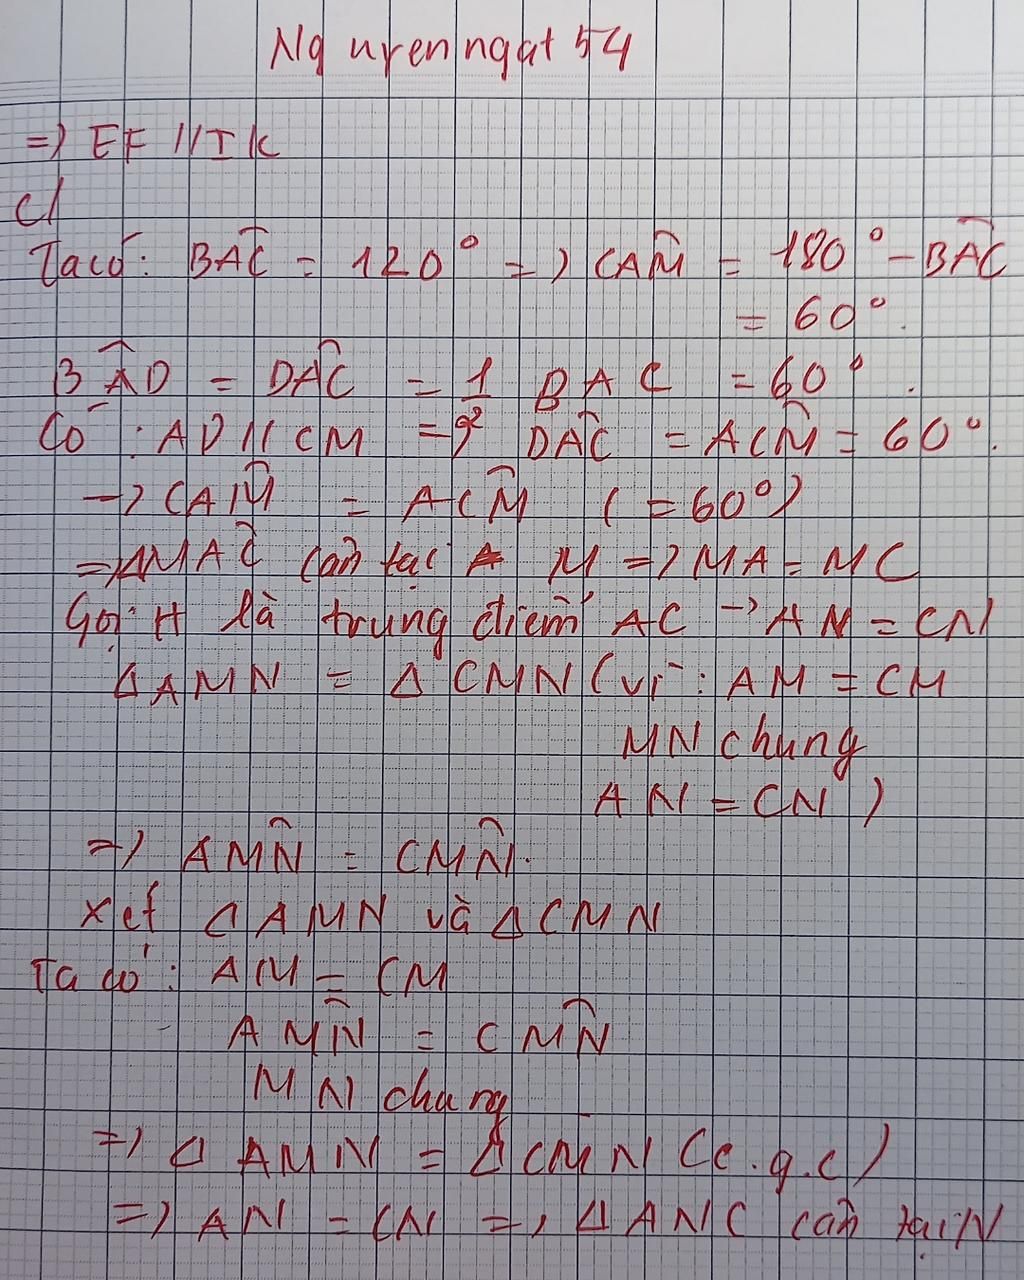 Nguyenngat54
=) EF // IK
c/
Ta có: BAC = 120° =) CAM = 180° - BAC
= 60°.
BAD = DAC = 1/2 BAC = 60°.
Có: AD // CM => DAC = ACM = 60°.
-) CAM = ACM (= 60°)
=) ΔMAC cân tại M =) MA = MC
Gọi H là trung điểm AC -> AN = CN
Δ AMN = Δ CMN (vì: AM = CM
MN chung
AN = CN)
=) AMN = CMN.
Xét Δ AMN và Δ CMN
Ta có: AM = CM
AMN = CMN
MN chung
=) Δ AMN = Δ CMN (c.g.c)
=) AN = CN =) Δ ANC cân tại N